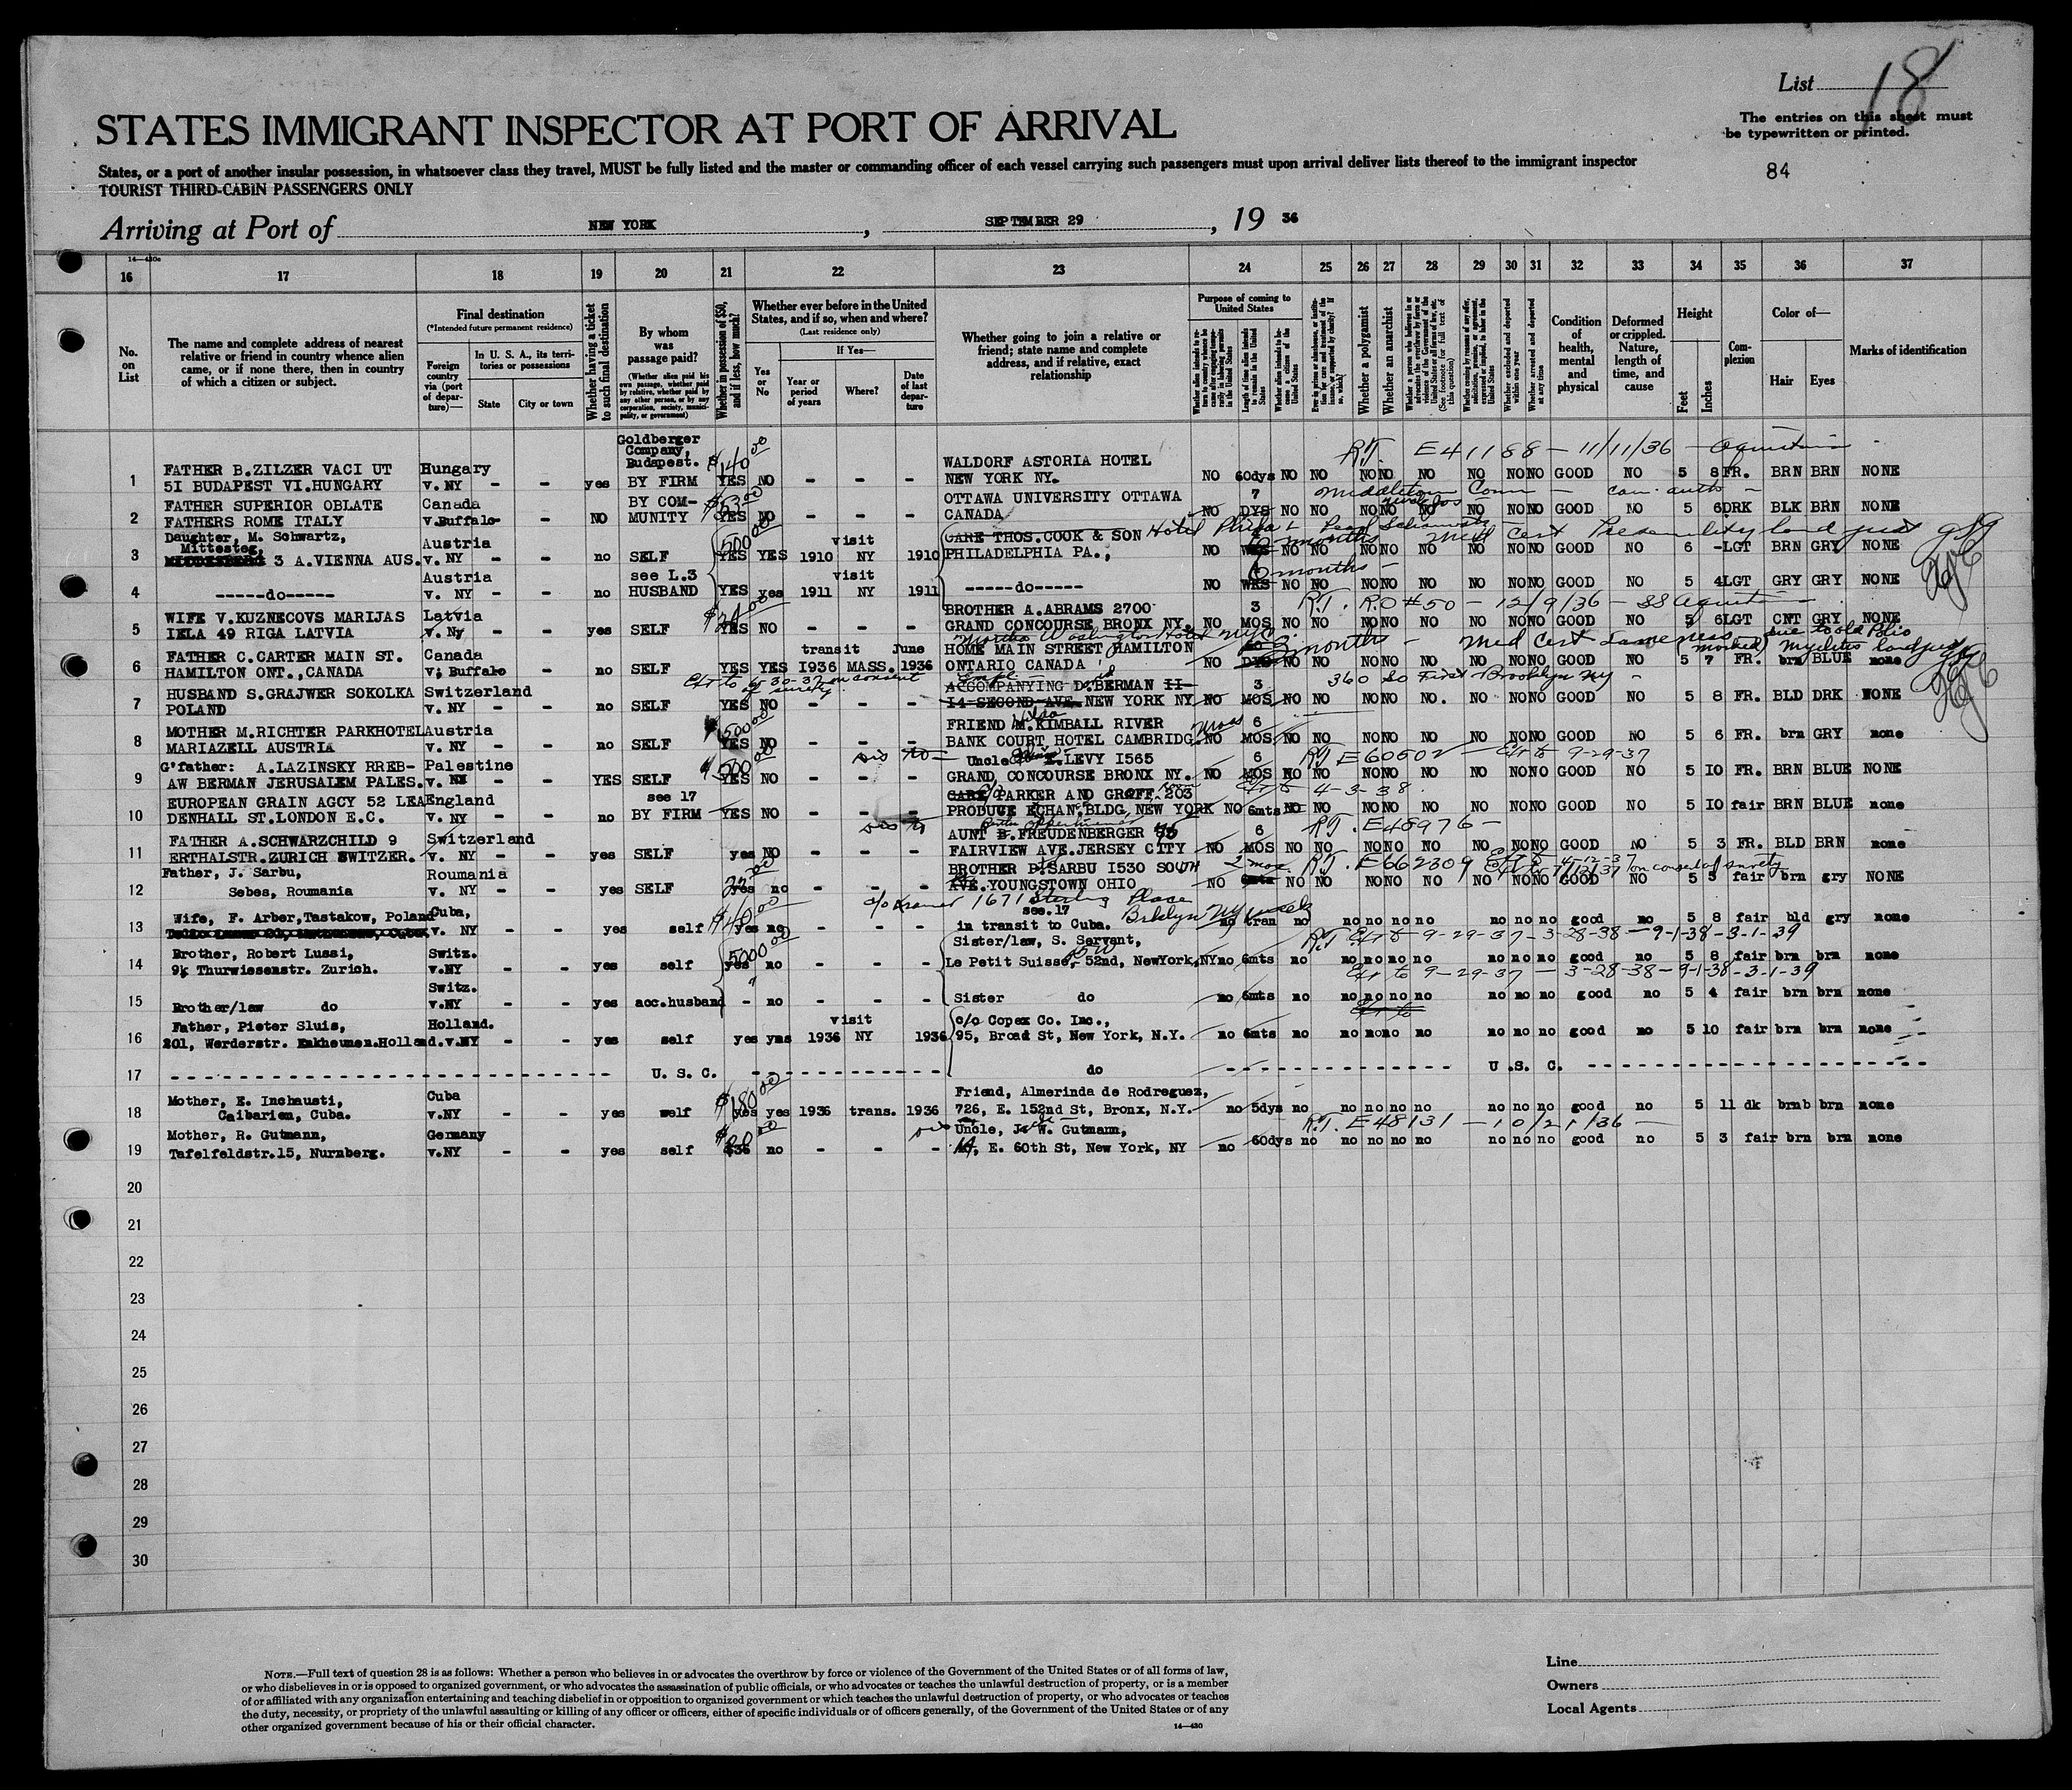 List 18
The entries on this sheet must
be typewritten or printed.
STATES IMMIGRANT INSPECTOR AT PORT OF ARRIVAL
States, or a port of another insular possession, in whatsoever class they travel, MUST be fully listed and the master or commanding officer of each vessel carrying such passengers must upon arrival deliver lists thereof to the immigrant inspector
TOURIST THIRD-CABIN PASSENGERS ONLY
84
Arriving at Port of NEW YORK, SEPTEMBER 29, 19 36
14—430c
16 17 18 19 20 21 22 23 24 25 26 27 28 29 30 31 32 33 34 35 36 37
No. on List
The name and complete address of nearest relative or friend in country whence alien came, or if none there, then in country of which a citizen or subject.
Final destination
(*Intended future permanent residence)
Foreign country via (port of departure)—
In U. S. A., its territories or possessions
State
City or town
Whether having a ticket to such final destination
By whom was passage paid?
(Whether alien paid his own passage, whether paid by relative, whether paid by any other person, or by any corporation, society, municipality, or government)
Whether in possession of $50, and if less, how much?
Whether ever before in the United States, and if so, when and where?
(Last residence only)
Yes or No
If Yes—
Year or period of years
Where?
Date of last departure
Whether going to join a relative or friend; state name and complete address, and if relative, exact relationship
Purpose of coming to United States
Length of time alien intends to remain in the United States
Whether alien intends to become a citizen of the United States
Whether a polygamist
Whether an anarchist
(See footnote for full text of this question)
Whether excluded and deported within one year
Whether arrested and deported at any time
Condition of health, mental and physical
Deformed or crippled. Nature, length of time, and cause
Height
Feet
Inches
Complexion
Color of—
Hair
Eyes
Marks of identification
Goldberger
Company,
Budapest. $140 00 R.T. E41188 — 11/11/36 — Aquitania
1 FATHER B.ZILZER VACI UT Hungary WALDORF ASTORIA HOTEL
5I BUDAPEST VI.HUNGARY v. NY - - yes BY FIRM YES NO - - - NEW YORK NY. NO 60dys NO NO NO NO NO NO NO NO GOOD NO 5 8 FR. BRN BRN NONE
2 FATHER SUPERIOR OBLATE Canada BY COM- $53 00 OTTAWA UNIVERSITY OTTAWA 7
FATHERS ROME ITALY v.Buffalo - NO MUNITY YES NO - - - CANADA NO DYS NO NO NO NO NO NO NO NO GOOD NO 5 6 DRK BLK BRN NONE
Daughter, M. Schwartz, 500 00 CARE THOS.COOK & SON Hotel Phila
Mittesteg, Austria visit
3 3 A.VIENNA AUS. v. NY - - no SELF YES YES 1910 NY 1910 PHILADELPHIA PA., 6 months NO WKS NO NO NO NO NO NO NO NO GOOD NO 6 - LGT BRN GRY NONE
Austria see L.3 visit 6 months
4 -----do----- v. NY - - no HUSBAND YES yes 1911 NY 1911 -----do----- NO WKS NO NO NO NO NO NO NO NO GOOD NO 5 4 LGT GRY GRY NONE
5 WIFE V.KUZNECOVS MARIJAS Latvia $20 00 BROTHER A.ABRAMS 2700 3 R.T. R.O #50 - 12/9/36 - SS Aquit
IELA 49 RIGA LATVIA v. Ny - - yes SELF YES NO - - - GRAND CONCOURSE BRONX NY. NO MOS NO NO NO NO NO NO NO NO GOOD NO 5 6 LGT CNT GRY NONE
Martha Washington Hotel NYC. 3 months - Med Cert Lameness (marked) due to old Polio Myelitis
6 FATHER C.CARTER MAIN ST. Canada transit June HOME MAIN STREET HAMILTON
HAMILTON ONT.,CANADA v; Buffalo - no SELF YES YES I936 MASS. 1936 ONTARIO CANADA NO DYS NO NO NO NO NO NO NO NO GOOD NO 5 7 FR. brn BLUE none
Ext to 6-30-37 on consent of surety
7 HUSBAND S.GRAJWER SOKOLKA Switzerland ACCOMPANYING D.BERMAN II- 3
POLAND v. NY - - no SELF YES NO - - - I4 SECOND AVE. NEW YORK NY NO MOS NO NO NO NO NO. NO NO NO GOOD NO 5 8 FR. BLD DRK NONE
8 MOTHER M.RICHTER PARKHOTEL Austria 500 00 FRIEND M.KIMBALL RIVER 6
MARIAZELL AUSTRIA v. NY - - no SELF YES NO - - - BANK COURT HOTEL CAMBRIDG. Mass NO MOS NO NO NO NO NO NO NO NO GOOD NO 5 6 FR. brn GRY none
9 G'father: A.LAZINSKY RREB- Palestine $500 00 Uncle LEVY I565 6 RT E60502 - Ext to 9-29-37
AW BERMAN JERUSALEM PALES. v. NY - - YES SELF YES NO - - - GRAND CONCOURSE BRONX NY. NO MOS NO NO NO NO NO NO NO NO GOOD NO 5 IO FR. BRN BLUE NONE
10 EUROPEAN GRAIN AGCY 52 LEA England see 17 CARE c/o PARKER AND GRAFF. 203 Ext to 4-3-38
DENHALL ST.LONDON E.C. v. NY - - no BY FIRM YES NO - - - PRODUCE ECHAN.BLDG.NEW YORK NO 6mts NO NO NO NO NO NO NO NO GOOD NO 5 IO fair BRN BLUE none
11 FATHER A.SCHWARZCHILD 9 Switzerland AUNT B.FREUDENBERGER 6 RT. E48976 -
ERTHALSTR.ZURICH SWITZER. v. NY - - yes SELF yes NO - - - FAIRVIEW AVE.JERSEY CITY NO MOS NO NO NO NO NO NO NO NO GOOD NO 5 3 FR. BLD BRN none
12 Father, J. Sarbu, Roumania BROTHER P.SARBU I530 SOUTH 2 mos. R.T. E662309 Ext to 4-12-37 on consent of surety
Sebes, Roumania v. NY - - yes SELF yes no - - - AVE.YOUNGSTOWN OHIO NO 6mts NO NO NO NO NO NO NO NO GOOD NO 5 5 fair brn gry NONE
c/o Kramer 1671 Sterling Place
Brklyn NY uncle
13 Wife, F. Arber,Tastakow, Poland Cuba, $40 00 see.17
v. NY - - yes self yes no - - - in transit to Cuba. no tran no no no no no no no no good no 5 8 fair bld gry none
14 Brother, Robert Lussi, Switz. 5000 00 Sister/law, S. Servant, R.T Ext to 9-29-37-3-28-38-9-1-38-3-1-39
9k Thurwiesenstr. Zurich. v.NY - - yes self yes no - - - Le Petit Suisse, 52nd, NewYork,NY no 6mts no no no no no no no no good no 5 8 fair brn brn none
15 Switz. Ext to 9-29-37 - 3-28-38-9-1-38-3-1-39
Brother/law do v.NY - - yes acc.husband - no - - - Sister do no 6mts no no no no no no no no good no 5 4 fair brn brn none
16 Father, Pieter Sluis, Holland. visit c/o Copex Co. Inc.,
201, Werderstr. Enkheumen.Holland. v.NY - - yes self yes yes 1936 NY 1936 95, Broad St, New York, N.Y. no 6mts no no no no no no no no good no 5 10 fair brn brn none
17 - - - U. S. C. - - - do - - - U .S. C. - - -
18 Mother, E. Inchausti, Cuba $180 00 Friend, Almerinda de Rodreguez,
Caibarien, Cuba. v.NY - - yes self yes yes 1936 trans. 1936 726, E. 152nd St, Bronx, N.Y. no 5dys no no no no no no no no good no 5 11 dk brnb brn none
19 Mother, R. Gutmann, Germany Uncle, J. W. Gutmann, R.T. E48131 - 10/21/36 -
Tafelfeldstr.15, Nurnberg. v.NY - - yes self $36 no - - - E. 60th St, New York, NY no 60dys no no no no no no no no good no 5 3 fair brn brn none
20
21
22
23
24
25
26
27
28
29
30
NOTE.—Full text of question 28 is as follows: Whether a person who believes in or advocates the overthrow by force or violence of the Government of the United States or of all forms of law,
or who disbelieves in or is opposed to organized government, or who advocates the assassination of public officials, or who advocates or teaches the unlawful destruction of property, or is a member
of or affiliated with any organization entertaining and teaching disbelief in or opposition to organized government or which teaches the unlawful destruction of property, or who advocates or teaches
the duty, necessity, or propriety of the unlawful assaulting or killing of any officer or officers, either of specific individuals or of officers generally, of the Government of the United States or of any
other organized government because of his or their official character.
14—430
Line
Owners
Local Agents